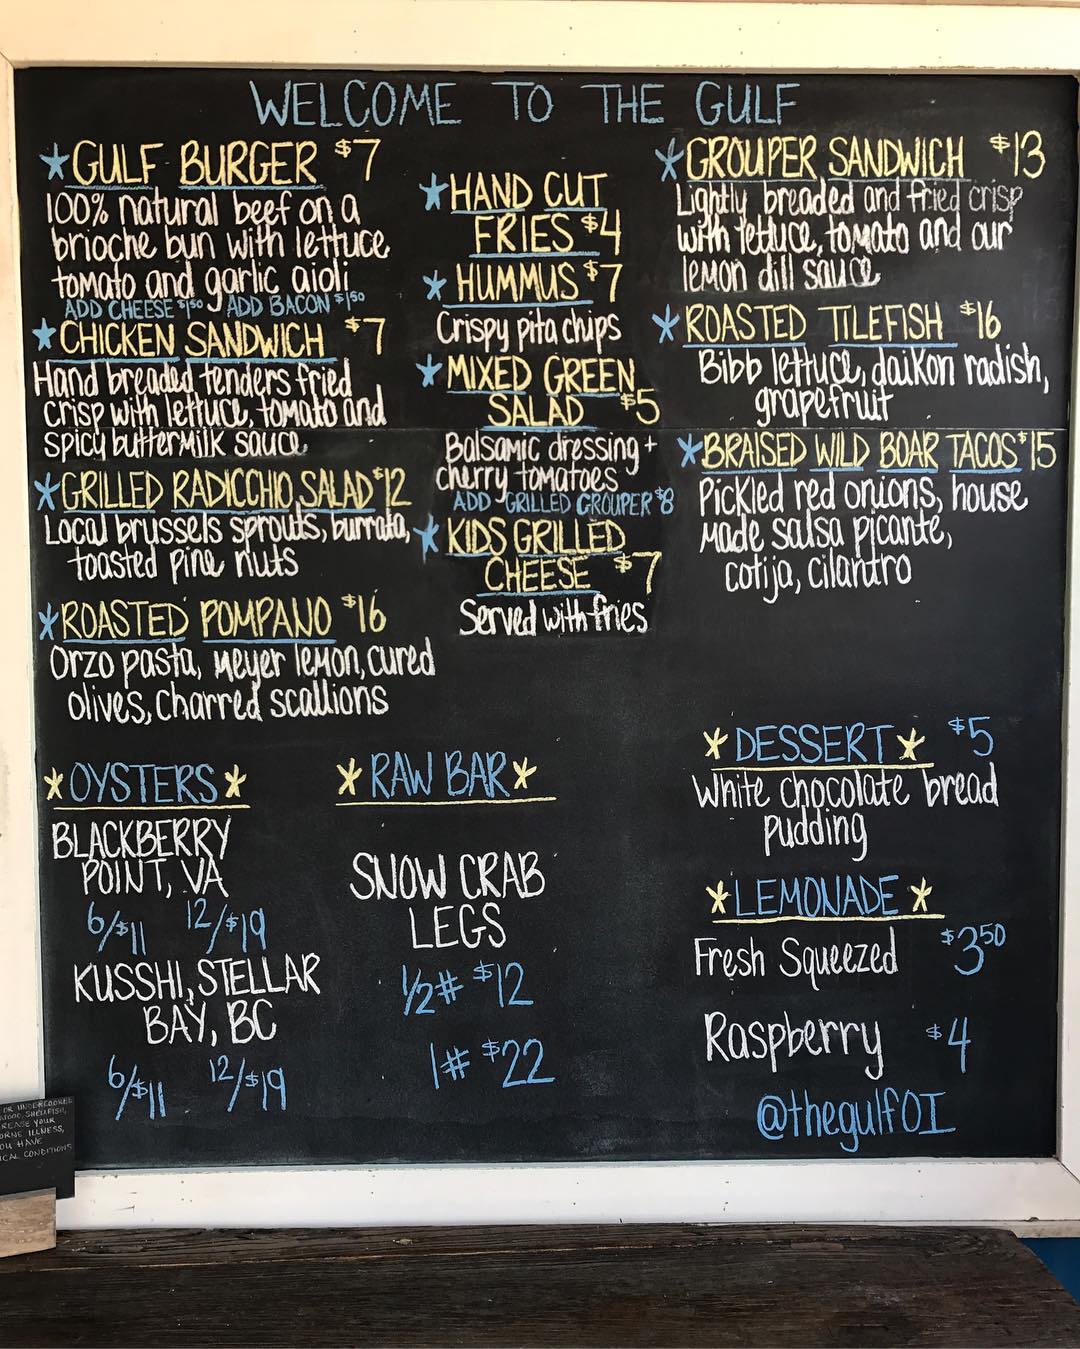 WELCOME TO THE GULF
*GULF BURGER $7
100% natural beef on a
brioche bun with lettuce
tomato and garlic aioli
ADD CHEESE $1.50 ADD BACON $1.50
*CHICKEN SANDWICH $7
Hand breaded tenders fried
crisp with lettuce, tomato and
spicy buttermilk sauce
*GRILLED RADICCHIO SALAD $12
Local brussels sprouts, burrata,
toasted pine nuts
*ROASTED POMPANO $16
Orzo pasta, meyer lemon, cured
olives, charred scallions
*HAND CUT
FRIES $4
*HUMMUS $7
Crispy pita chips
*MIXED GREEN
SALAD $5
Balsamic dressing +
cherry tomatoes
ADD GRILLED GROUPER $8
*KIDS GRILLED
CHEESE $7
Served with fries
*GROUPER SANDWICH $13
Lightly breaded and fried crisp
with lettuce, tomato and our
lemon dill sauce
*ROASTED TILEFISH $16
Bibb lettuce, daikon radish,
grapefruit
*BRAISED WILD BOAR TACOS $15
Pickled red onions, house
made salsa picante,
cotija, cilantro
*OYSTERS*
BLACKBERRY
POINT, VA
6/$11 12/$19
KUSSHI, STELLAR
BAY, BC
6/$11 12/$19
*RAW BAR*
SNOW CRAB
LEGS
1/2# $12
1# $22
*DESSERT* $5
White chocolate bread
pudding
*LEMONADE*
Fresh Squeezed $3.50
Raspberry $4
@thegulfOI
OR UNDERCOOKED
SHELLFISH,
YOUR
ILLNESS,
HAVE
CONDITIONS